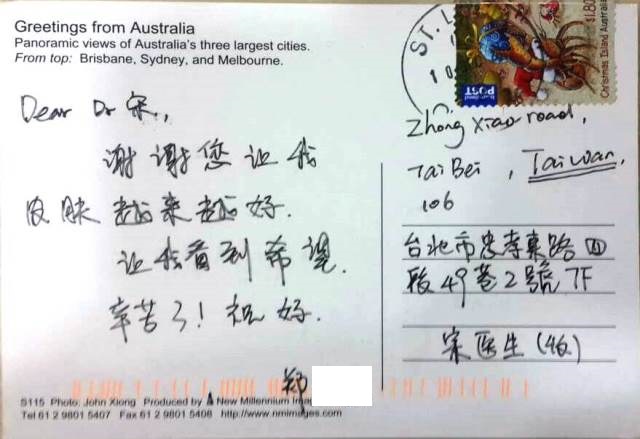 Greetings from Australia
Panoramic views of Australia's three largest cities.
From top: Brisbane, Sydney, and Melbourne.
ST. L
10
$1.80
Christmas Island Australia
POST
Dear Dr 宋.,
谢谢您让我
皮肤越来越好.
让我看到希望.
辛苦了! 祝好.
郑
Zhong Xiao road,
TaiBei, Taiwan,
106
台北市忠孝東路四
段49巷2號7F
宋医生(收)
S115 Photo: John Xiong Produced by New Millennium Imag
Tel 61 2 9801 5407 Fax 61 2 9801 5408 http://www.nmimages.com